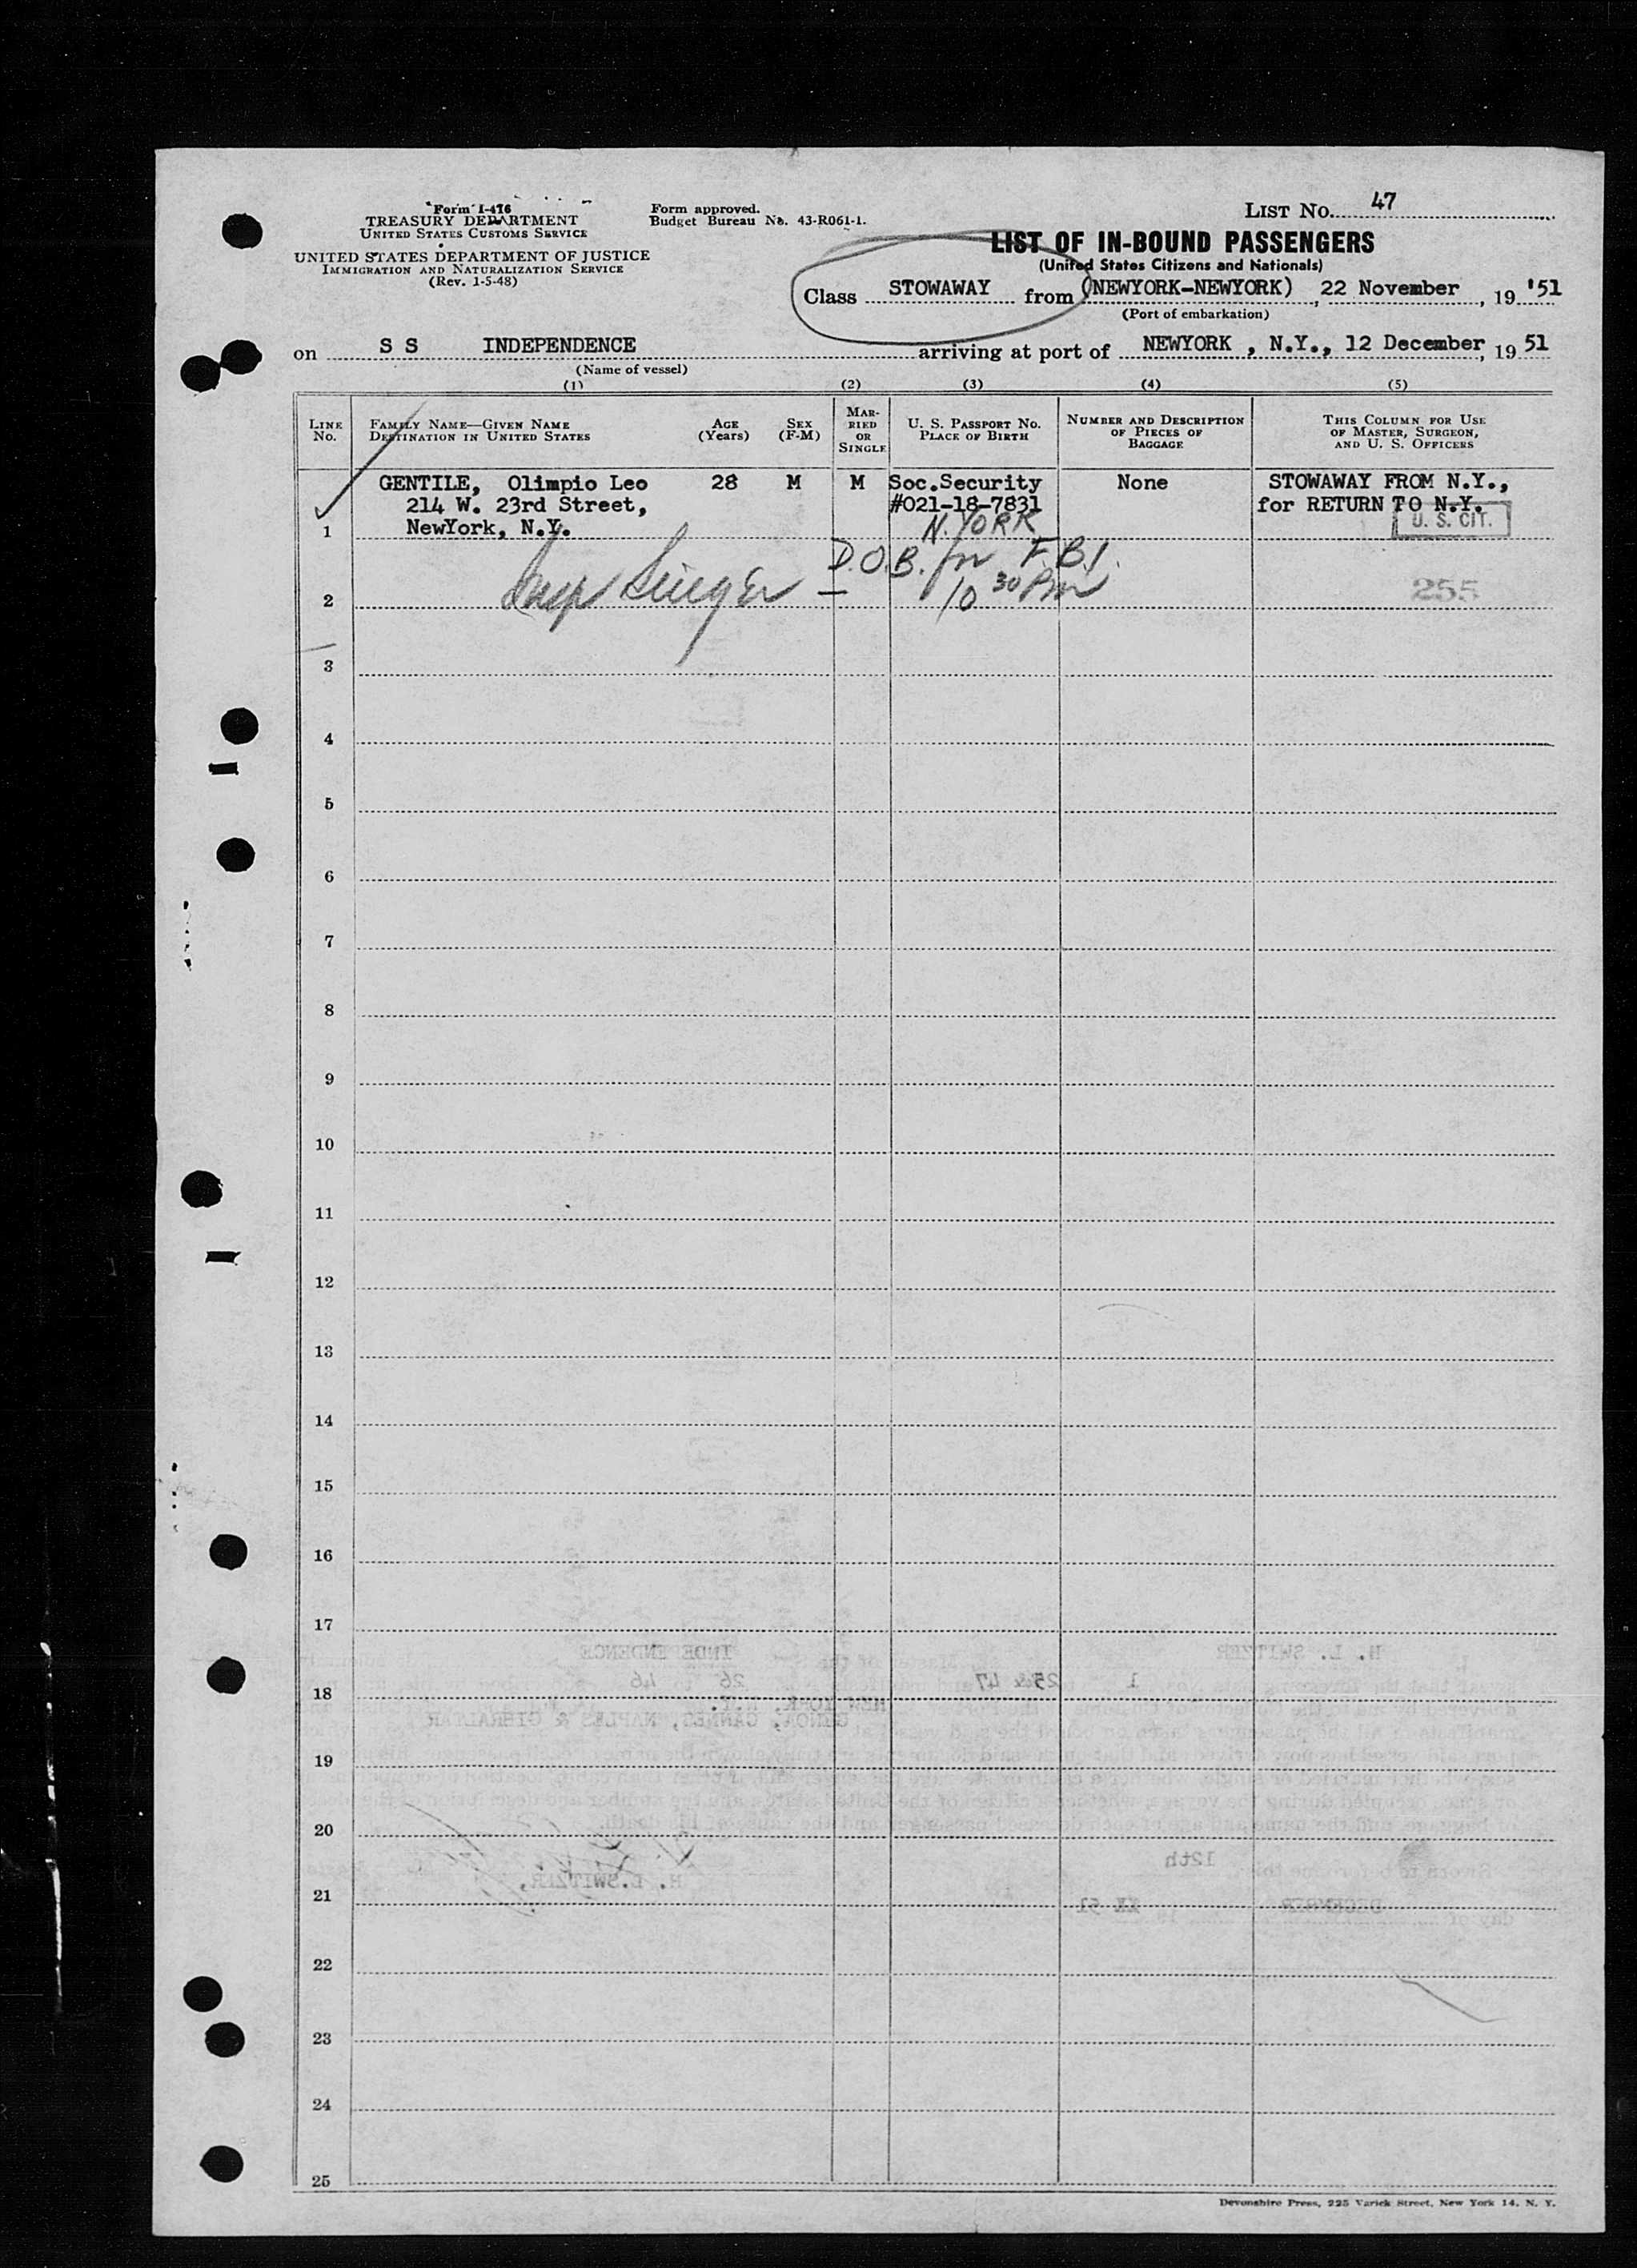 Form I-416
TREASURY DEPARTMENT
UNITED STATES CUSTOMS SERVICE
UNITED STATES DEPARTMENT OF JUSTICE
IMMIGRATION AND NATURALIZATION SERVICE
(Rev. 1-5-48)
Form approved.
Budget Bureau No. 43-R061-1.
LIST No. 47
LIST OF IN-BOUND PASSENGERS
(United States Citizens and Nationals)
Class STOWAWAY from (NEWYORK-NEWYORK), 22 November, 19 '51
(Port of embarkation)
on S S INDEPENDENCE arriving at port of NEWYORK , N.Y., 12 December, 19 51
(Name of vessel)
(1) (2) (3) (4) (5)
LINE No.
FAMILY NAME—GIVEN NAME
DESTINATION IN UNITED STATES
AGE (Years)
SEX (F-M)
MARRIED OR SINGLE
U. S. PASSPORT No.
PLACE OF BIRTH
NUMBER AND DESCRIPTION
OF PIECES OF
BAGGAGE
THIS COLUMN FOR USE
OF MASTER, SURGEON,
AND U. S. OFFICERS
GENTILE, Olimpio Leo 28 M M Soc.Security None STOWAWAY FROM N.Y.,
214 W. 23rd Street, #021-18-7831 for RETURN TO N.Y.
1 NewYork, N.Y. N. YORK U. S. CIT.
D.O.B. F.B.I.
2 10 30 PM 255
3
4
5
6
7
8
9
10
11
12
13
14
15
16
17
INDEPENDENCE H. L. SWITZER
18 26 46 25 & 47 1
NEW YORK, N.Y.
GENOA, CANNES, NAPLES & GIBRALTAR
19
20
12th
H. L. SWITZER,
21 DECEMBER 51
22
23
24
25
Devonshire Press, 225 Varick Street, New York 14, N. Y.